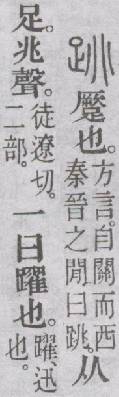 跳
蹷也。方言。自關而西
秦晉之閒曰跳。从
足。兆聲。徒遼切。
二部。一曰躍也。躍、迅
也。